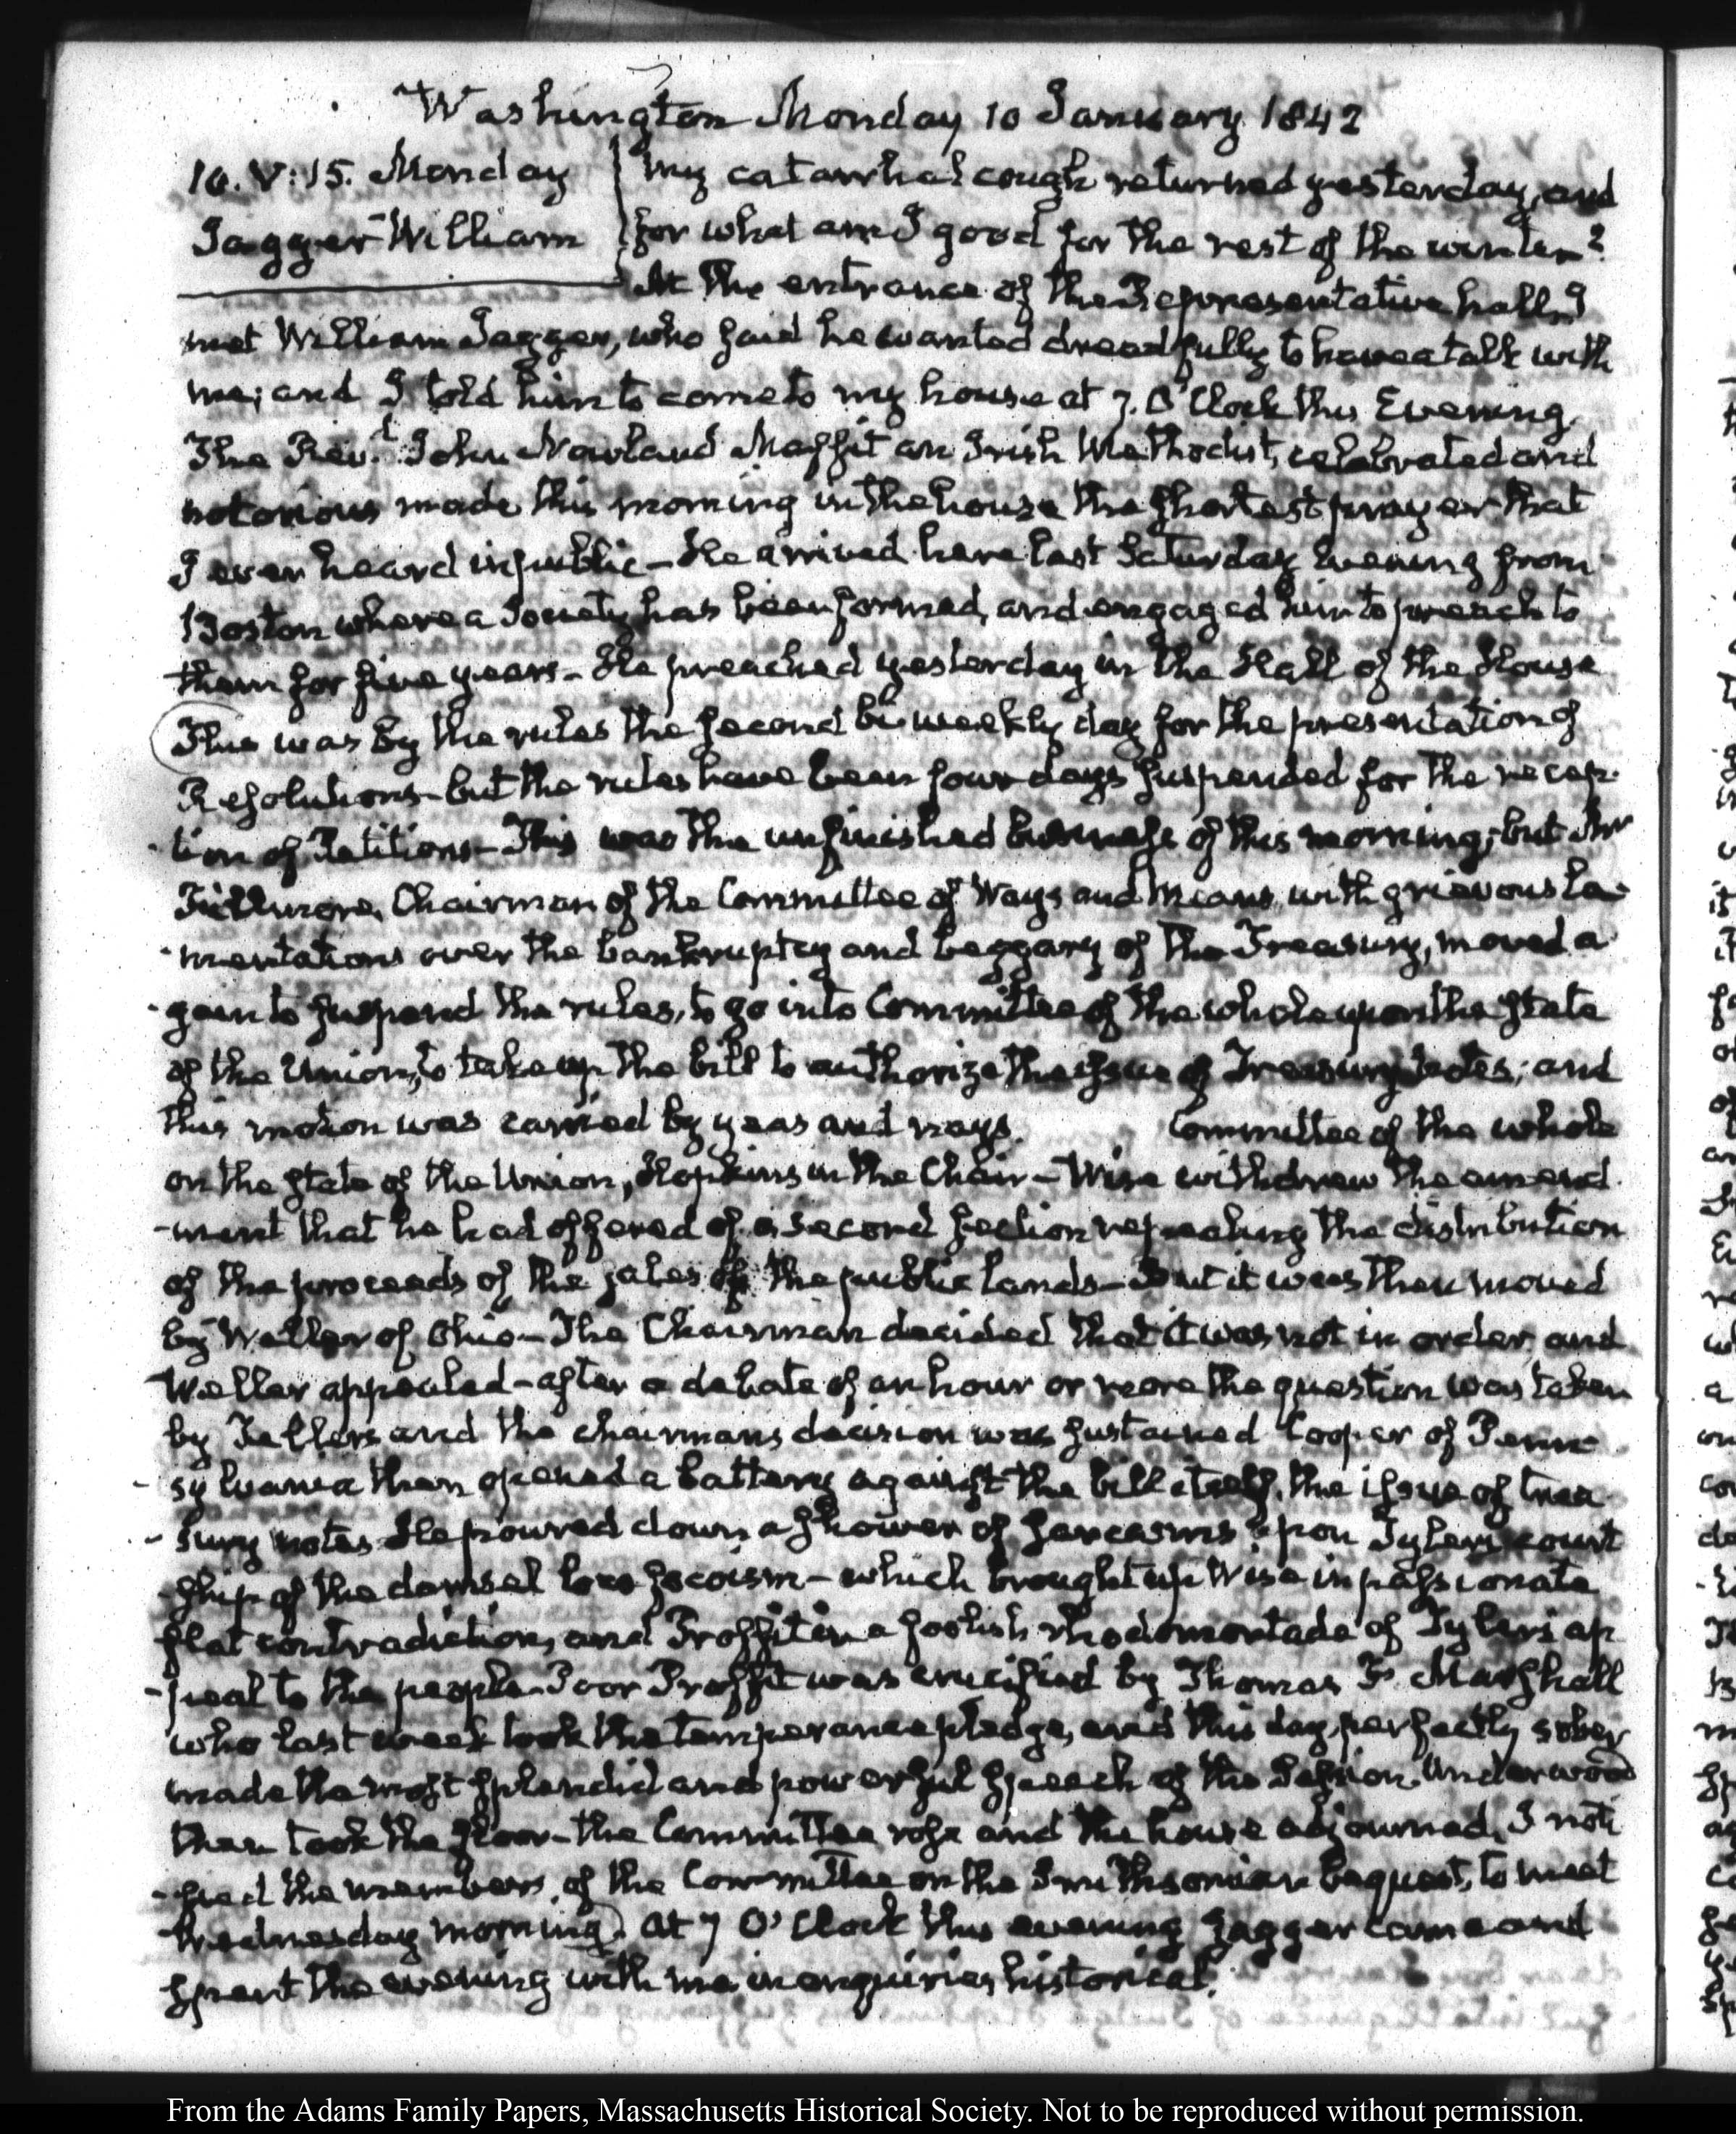 Washington Monday 10 January 1842
10. V:15. Monday
Jagger William
My catarrhal cough returned yesterday, and
for what am I good for the rest of the winter?
At the entrance of the Representative hall, I
met William Jagger, who said he wanted dreadfully to have a talk with
me; and I told him to come to my house at 7. O'Clock this Evening.
The Revd. John Newland Maffit an Irish Methodist, celebrated and
notorious made this morning in the house the shortest prayer that
I ever heard in public - He arrived here last Saturday Evening from
Boston where a Society has been formed, and engaged him to preach to
them for five years - He preached yesterday in the Hall of the House
This was by the rules the second bi-weekly day for the presentation of
Resolutions - but the rules have been four days suspended for the recep-
-tion of Petitions - This was the unfinished business of this morning; but Mr
Fillmore, Chairman of the Committee of Ways and Means, with grievous la-
-mentations over the bankruptcy and beggary of the Treasury, moved a-
-gain to suspend the rules, to go into Committee of the whole upon the state
of the Union, to take up the bill to authorize the issue of Treasury Notes; and
this motion was carried by yeas and nays. Committee of the whole
on the state of the Union, Hopkins in the Chair - Wise withdrew the amend-
-ment that he had offered of a second section repealing the distribution
of the proceeds of the sales of the public lands - But it was then moved
by Weller of Ohio - The Chairman decided that it was not in order, and
Weller appealed - after a debate of an hour or more the question was taken
by Tellers and the chairmans decision was sustained Cooper of Penn-
-sylvania then opened a battery against the bill itself, the issue of trea-
-sury notes He poured down a shower of sarcasms upon Tylers court-
-ship of the damsel loco focoism - which brought up Wise in passionate
flat contradiction, and Proffit in a foolish rhodomontade of Tylers ap-
-peal to the people - Poor Proffit was crucified by Thomas F. Marshall
who last week took the temperance pledge, and this day, perfectly sober
made the most splendid and powerful speech of the Session. Underwood
then took the floor - the Committee rose and the house adjourned. I noti-
-fied the members of the Committee on the Smithsonian bequest, to meet
Wednesday morning. At 7 O'Clock this evening Jagger came and
spent the evening with me in enquiries historical.
From the Adams Family Papers, Massachusetts Historical Society. Not to be reproduced without permission.